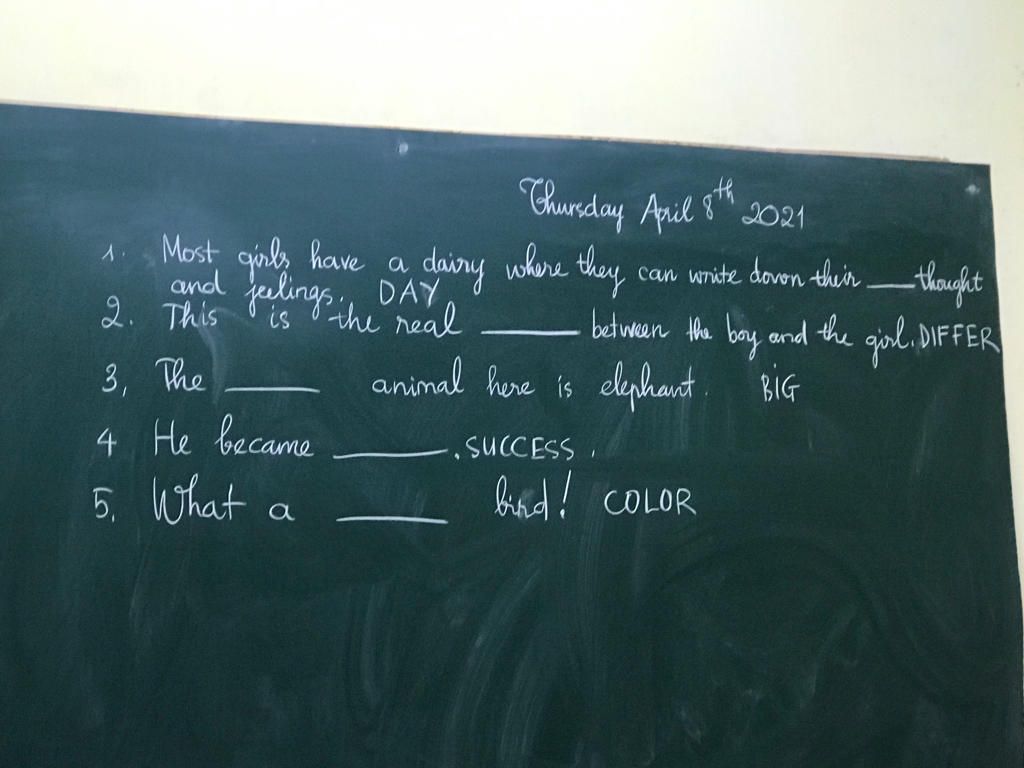 Thursday April 8th 2021
1. Most girls have a dairy where they can write down their ___ thought
and feelings. DAY
2. This is the real ___ between the boy and the girl. DIFFER
3, The ___ animal here is elephant. BIG
4 He became ___. SUCCESS.
5. What a ___ bird! COLOR